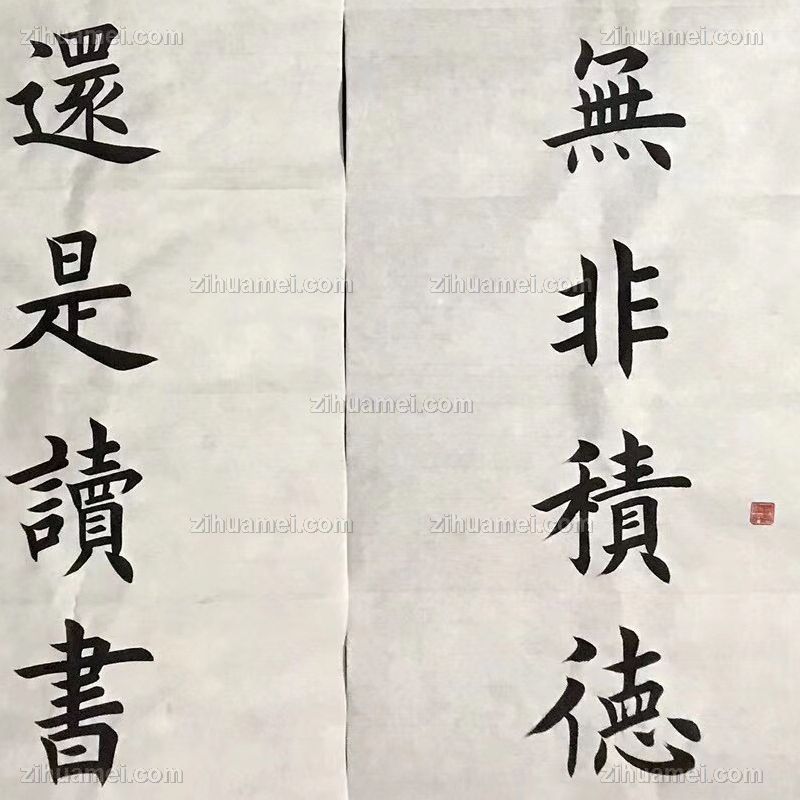 無非積德
還是讀書
zihuamei.com
zihuamei.com
zihuamei.com
zihuamei.com
zihuamei.com
zihuamei.com
zihuamei.com
zihuamei.com
zihuamei.com
zihuamei.com